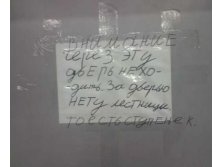 ВНИМАНИЕ
через эту
дверь нехо-
дить. За дверью
НЕТУ лестницы
ТО ЕСТЬ СТУПЕНЕК.